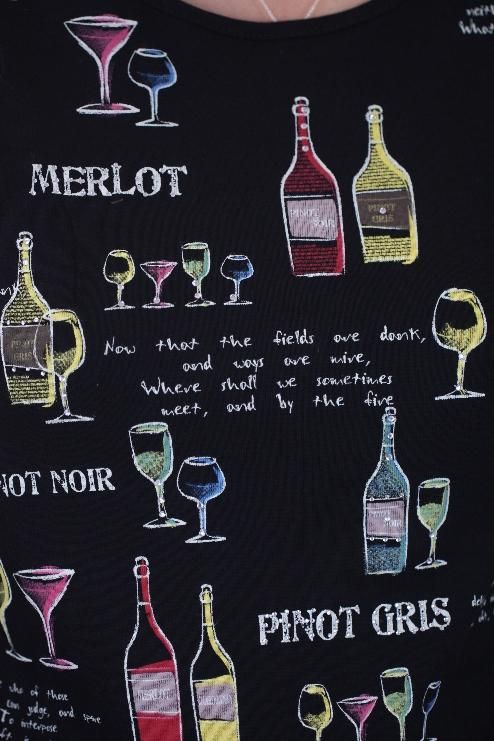 What
MERLOT
PINOT
NOIR
PINOT
GRIS
PINOT
GRIS
Now that the fields are dank,
and ways are mire,
Where shall we sometimes
meet, and by the fire
NOT NOIR
PINOT GRIS
who of those
can judge, and spare
To interpose